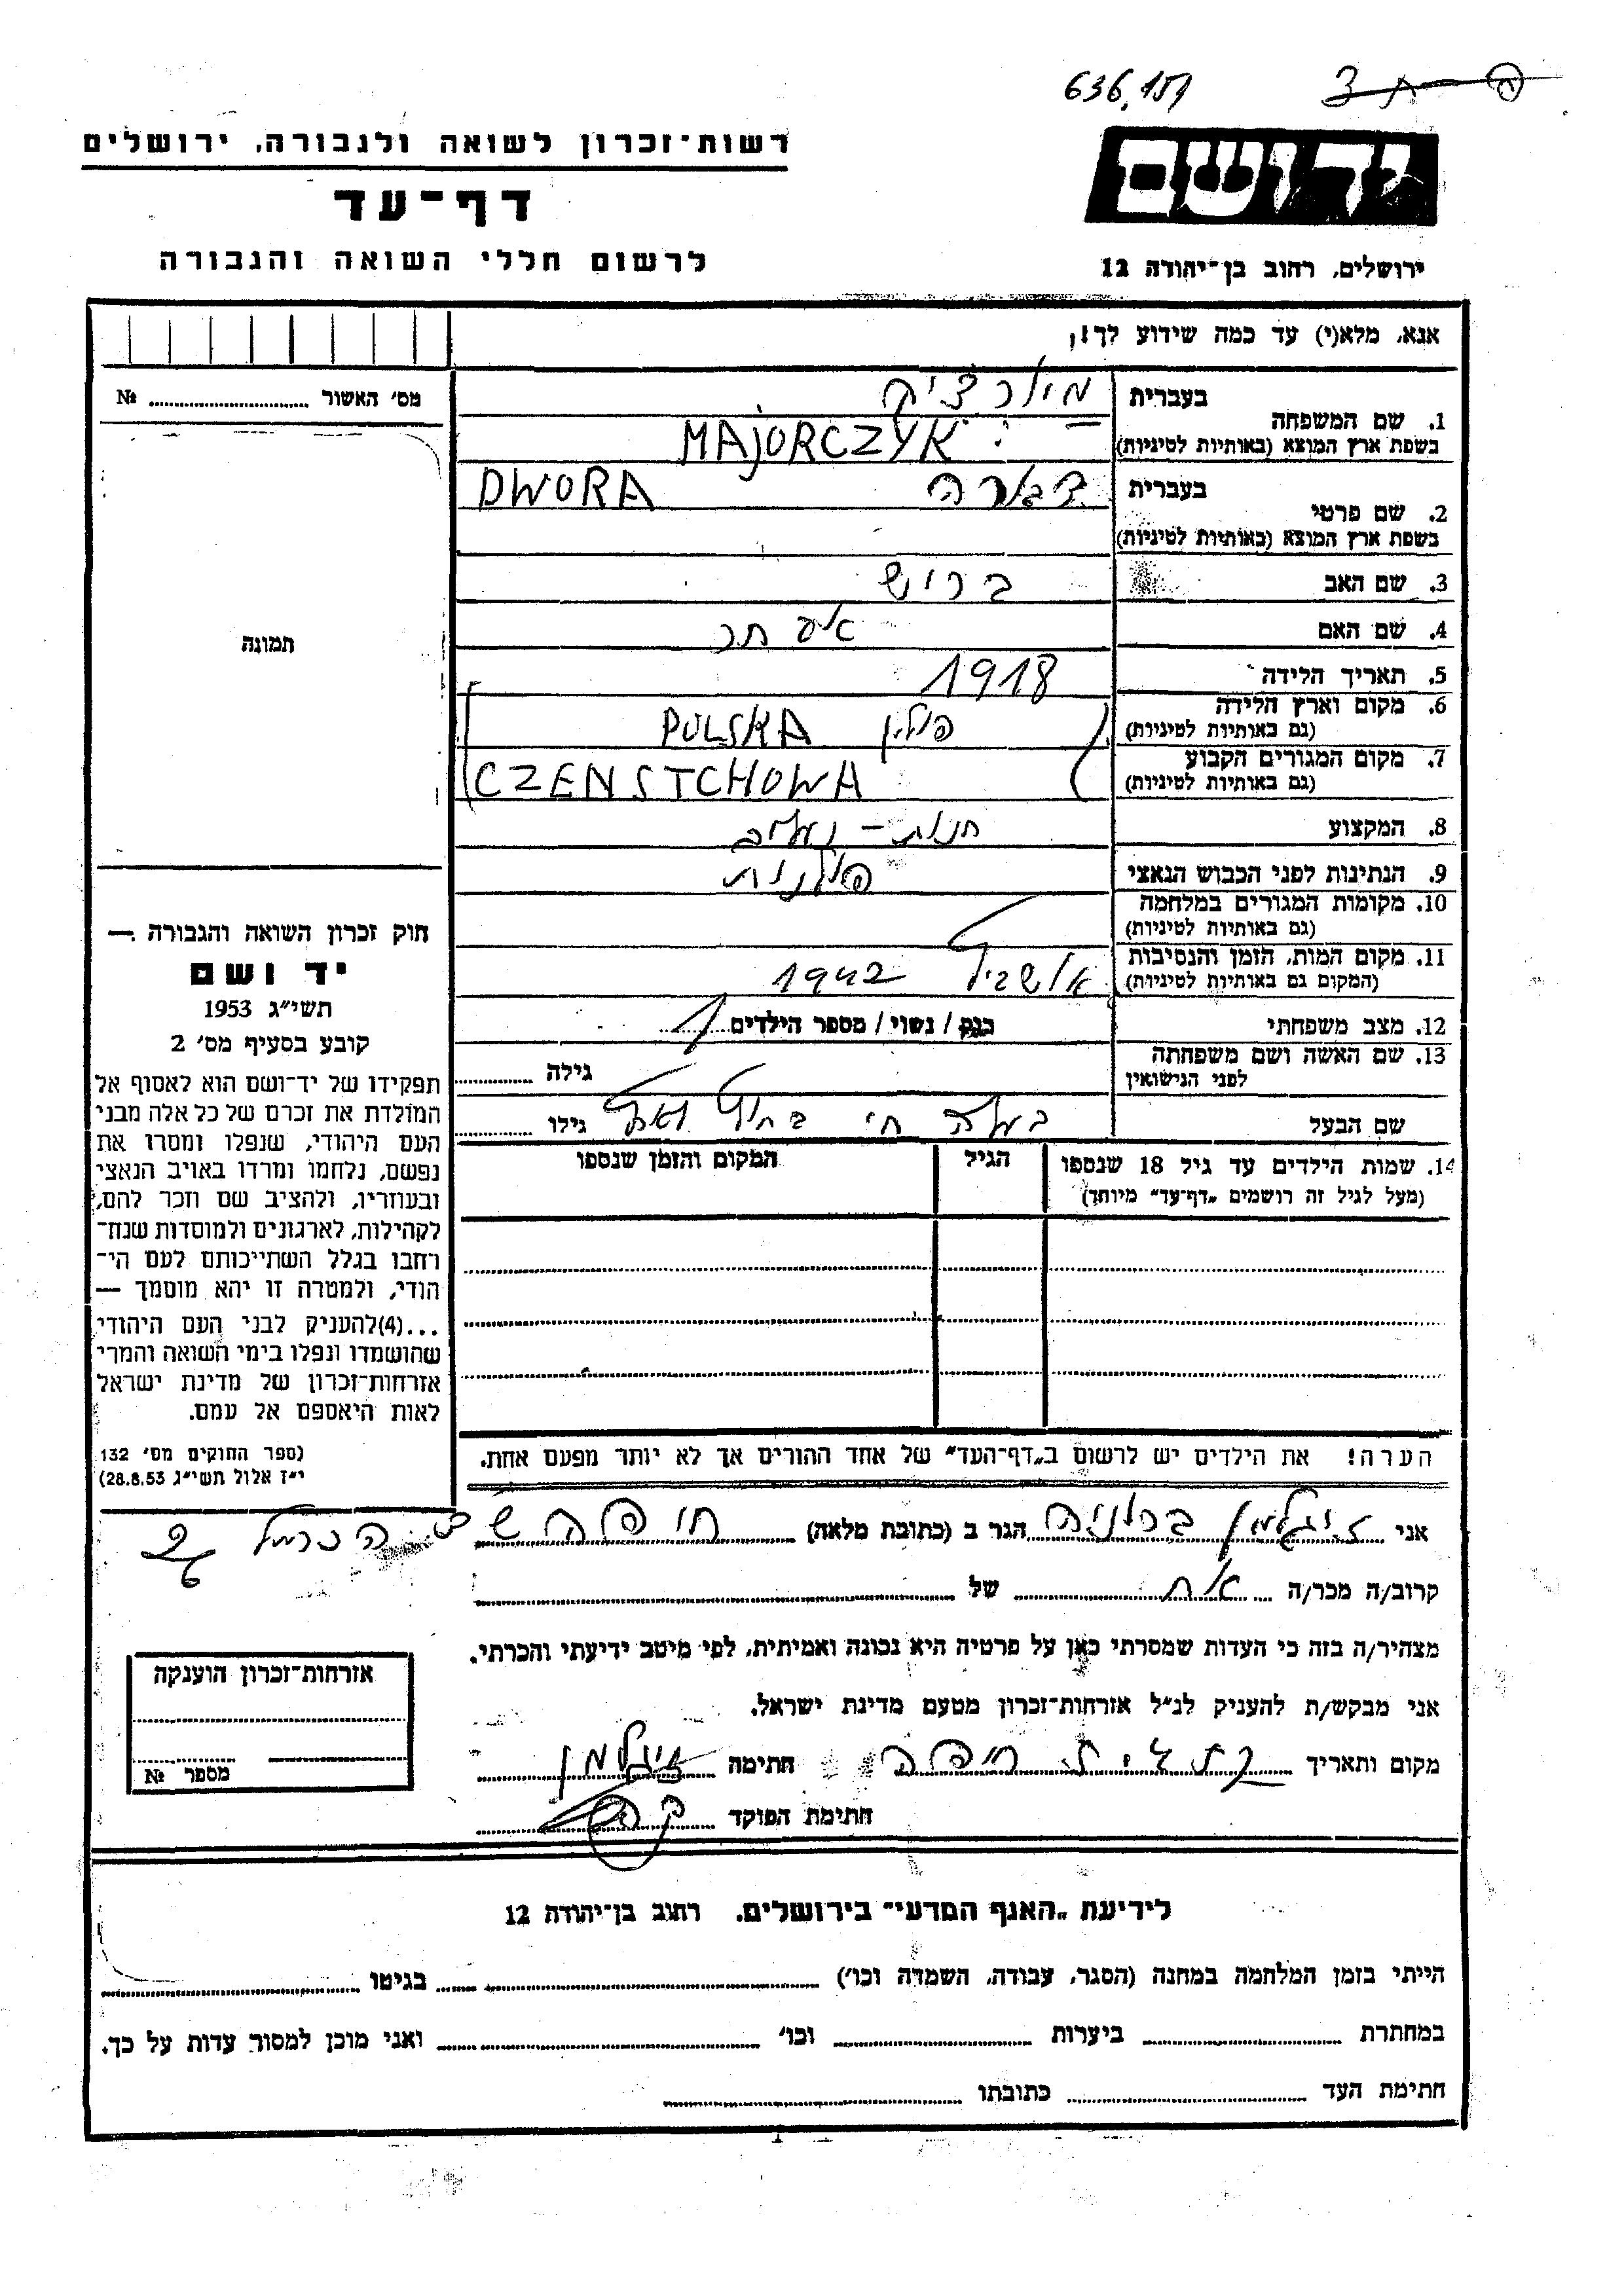 636,151
רשות־זכרון לשואה ולגבורה, ירושלים
דף־עד
לרשום חללי השואה והגבורה
יד ושם
ירושלים, רחוב בן־יהודה 12
אנא, מלא(י) עד כמה שידוע לך!
מס׳ האשור № ..........
תמונה
1. שם המשפחה בעברית מיורציק
בשפת ארץ המוצא (באותיות לטיניות) MAJORCZYK
2. שם פרטי בעברית דבורה DWORA
בשפת ארץ המוצא (באותיות לטיניות)
3. שם האב בריש
4. שם האם אסתר
5. תאריך הלידה 1918
6. מקום וארץ הלידה (גם באותיות לטיניות) פולין POLSKA
7. מקום המגורים הקבוע (גם באותיות לטיניות) CZENSTCHOWA
8. המקצוע חנות –
9. הנתינות לפני הכבוש הנאצי פולנית
10. מקומות המגורים במלחמה (גם באותיות לטיניות)
11. מקום המות, הזמן והנסיבות (המקום גם באותיות לטיניות) 1942
12. מצב משפחתי רווק / נשוי / מספר הילדים 1
13. שם האשה ושם משפחתה לפני הנישואין גילה ..........
שם הבעל בעלה חי בחול גילו ..........
14. שמות הילדים עד גיל 18 שנספו
(מעל לגיל זה רושמים „דף־עד״ מיוחד)
הגיל
המקום והזמן שנספו
חוק זכרון השואה והגבורה —
יד ושם
תשי״ג 1953
קובע בסעיף מס׳ 2
תפקידו של יד־ושם הוא לאסוף אל
המולדת את זכרם של כל אלה מבני
העם היהודי, שנפלו ומסרו את
נפשם, נלחמו ומרדו באויב הנאצי
ובעוזריו, ולהציב שם וזכר להם,
לקהילות, לארגונים ולמוסדות שנח־
רחבו בגלל השתייכותם לעם הי־
הודי, ולמטרה זו יהא מוסמך —
...(4)להעניק לבני העם היהודי
שהושמדו ונפלו בימי השואה והמרי
אזרחות־זכרון של מדינת ישראל
לאות היאספם אל עמם.
(ספר החוקים מס׳ 132
י״ז אלול תשי״ג 28.8.53)
הערה! את הילדים יש לרשום ב„דף־העד״ של אחד ההורים אך לא יותר מפעם אחת.
אני זיגלמן ברוניה הגר ב (כתובת מלאה) חיפה הכרמל
קרוב/ה מכר/ה אח של
מצהיר/ה בזה כי העדות שמסרתי כאן על פרטיה היא נכונה ואמיתית, לפי מיטב ידיעתי והכרתי.
אני מבקש/ת להעניק לנ״ל אזרחות־זכרון מטעם מדינת ישראל.
מקום ותאריך חיפה חתימה זיגלמן
חתימת הפוקד
אזרחות־זכרון הוענקה
מספר №
לידיעת „האגף המדעי״ בירושלים, רחוב בן־יהודה 12
הייתי בזמן המלחמה במחנה (הסגר, עבודה, השמדה וכו׳) .......... בגיטו ..........
במחתרת .......... ביערות .......... וכו׳ .......... ואני מוכן למסור עדות על כך.
חתימת העד .......... כתובתו ..........